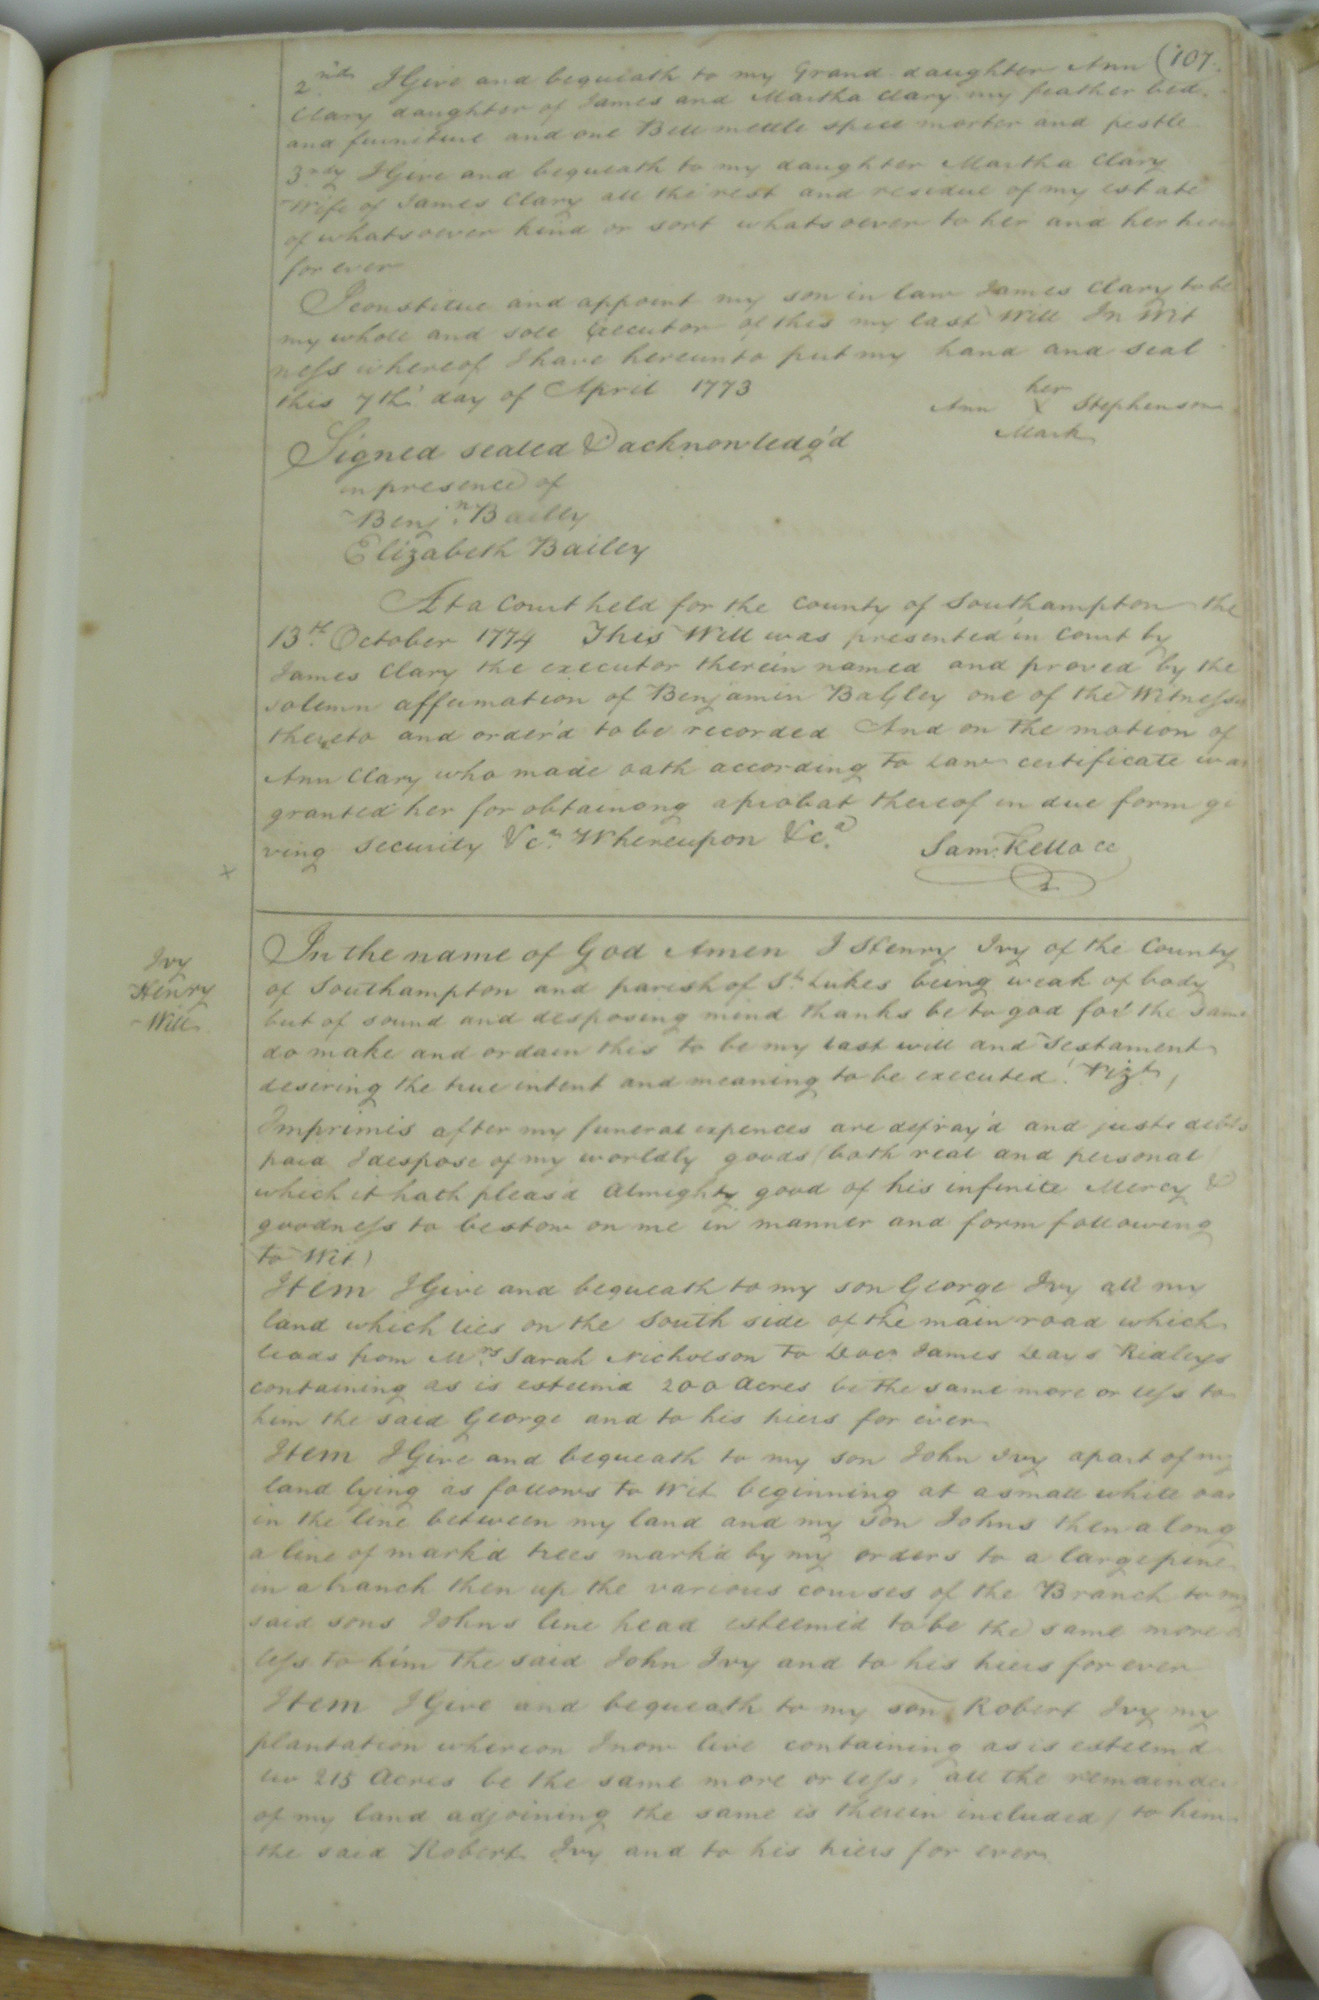 (107
2nd I Give and bequeath to my Grand daughter Ann
Clary daughter of James and Martha Clary my feather bed
and furniture and one Bell mettle spice morter and pestle
3rdly I Give and bequeath to my daughter Martha Clary
Wife of James Clary all the rest and residue of my estate
of whatsoever kind or sort whatsoever to her and her heirs
for ever
I constitue and appoint my son in law James Clary to be
my whole and sole Executor of this my last Will In Wit
ness whereof I have hereunto put my hand and seal
this 7th day of April 1773
her
Ann X Stephenson
Mark
Signed sealed & acknowledg'd
in presence of
Benjn. Bailey
Elizabeth Bailey
At a Court held for the County of Southampton the
13th October 1774 This Will was presented in Court by
James Clary the executor therein named and proved by the
solemn affirmation of Benjamin one of the Witnesses
thereto and order'd to be recorded And on the motion of
Ann Clary who made oath according to Law certificate was
granted her for obtainong a probat thereof in due form gi
ving Security &ca Whereupon &ca.
Sam. Kello CC
x
Ivy
Henry
Will
In the name of God Amen I Henry Ivy of the County
of Southampton and parish of St. Lukes being weak of body
but of sound and desposing mind thanks be to god for the same
do make and ordain this to be my last will and Testament
desiring the true intent and meaning to be executed Vizt,
Imprimis after my funeral expences are defray'd and juste debts
paid I despose of my worldly goods (both real and personal
which it hath pleas'd Almighty good of his infinite Mercy &
goodness to bestow on me in manner and form following
to Wit)
Item I Give and bequeath to my son George Ivy all my
land which lies on the South side of the main road which
leads from Mrs Sarah Nicholson to Docr James Days Ridleys
containing as is esteemd 200 acres be the same more or less to
him the said George and to his hiers for ever
Item I Give and bequeath to my son John Ivy a part of my
land lying as follows to Wit beginning at a small white oak
in the line between my land and my son Johns then along
a line of mark'd trees mark'd by my orders to a large pine
in a branch then up the various courses of the Branch to my
said sons Johns line head esteem'd to be the same more or
less to him the said John Ivy and to his hiers for ever
Item I Give and bequeath to my son Robert Ivy my
plantation whereon I now live containing as is esteemd
215 acres be the same more or less, all the remainder
of my land adjoining the same is therein included) to him
the said Robert Ivy and to his hiers for ever